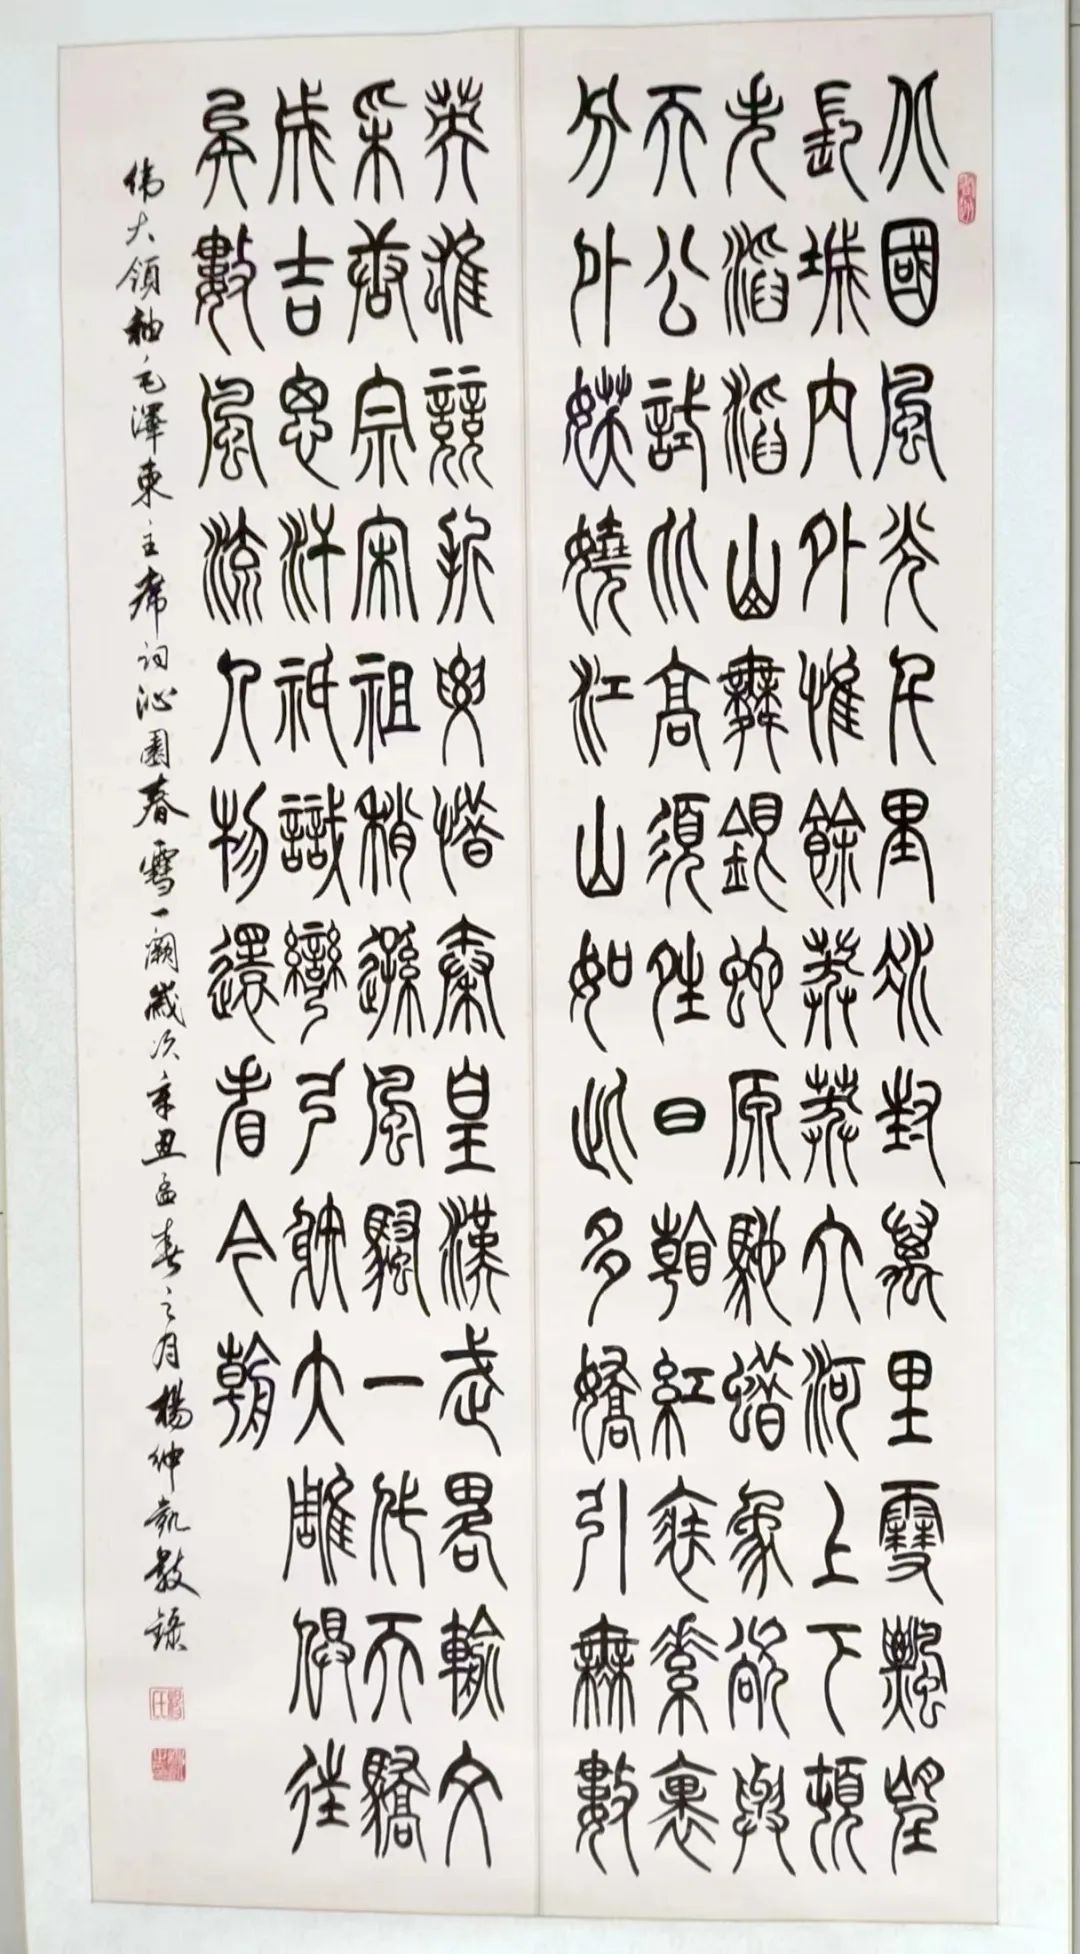 北國風光千里冰封萬里雪飄望
長城內外惟餘莽莽大河上下頓
失滔滔山舞銀蛇原馳蠟象欲與
天公試比高須晴日看紅裝素裹
分外妖嬈江山如此多嬌引無數
英雄競折腰惜秦皇漢武畧輸文
采唐宗宋祖稍遜風騷一代天驕
成吉思汗祇識彎弓射大雕俱往
矣數風流人物還看今朝
偉大領袖毛澤東主席詞沁園春雪一闋歲次辛丑孟春之月楊紳凱敬錄